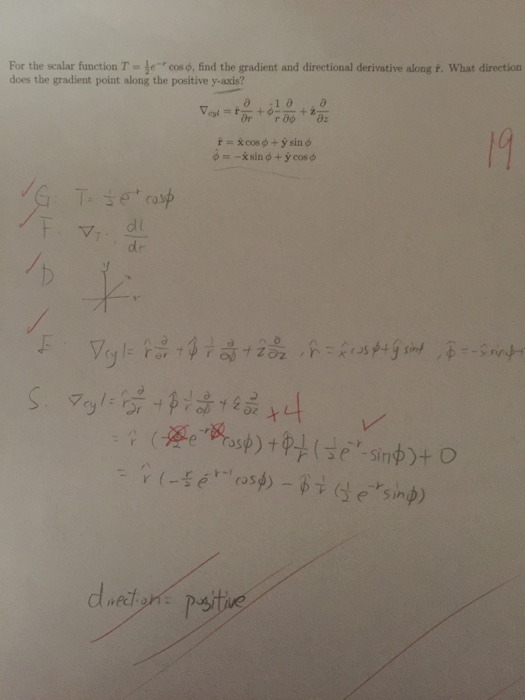 For the scalar function T = ½e⁻ʳ cos ϕ, find the gradient and directional derivative along r̂. What direction
does the gradient point along the positive y-axis?
∇cyl = r̂ ∂/∂r + ϕ̂ 1/r ∂/∂ϕ + ẑ ∂/∂z
r̂ = x̂ cos ϕ + ŷ sin ϕ
ϕ̂ = −x̂ sin ϕ + ŷ cos ϕ
19
G: T = ½ e⁻ʳ cosϕ
F. ∇T. dl/dr
D
y
E. ∇cyl = r̂ ∂/∂r + ϕ̂ 1/r ∂/∂ϕ + ẑ ∂/∂z , r̂ = x̂ cosϕ + ŷ sinϕ , ϕ̂ = -x̂ sinϕ +
S. ∇cyl = r̂ ∂/∂r + ϕ̂ 1/r ∂/∂ϕ + ẑ ∂/∂z +4
= r̂ ( e⁻ʳ cosϕ) + ϕ̂ 1/r (½ e⁻ʳ -sinϕ) + 0
= r̂ (-r/2 e⁻ʳ⁻¹ cosϕ) - ϕ̂ 1/r (½ e⁻ʳ sinϕ)
direction = positive